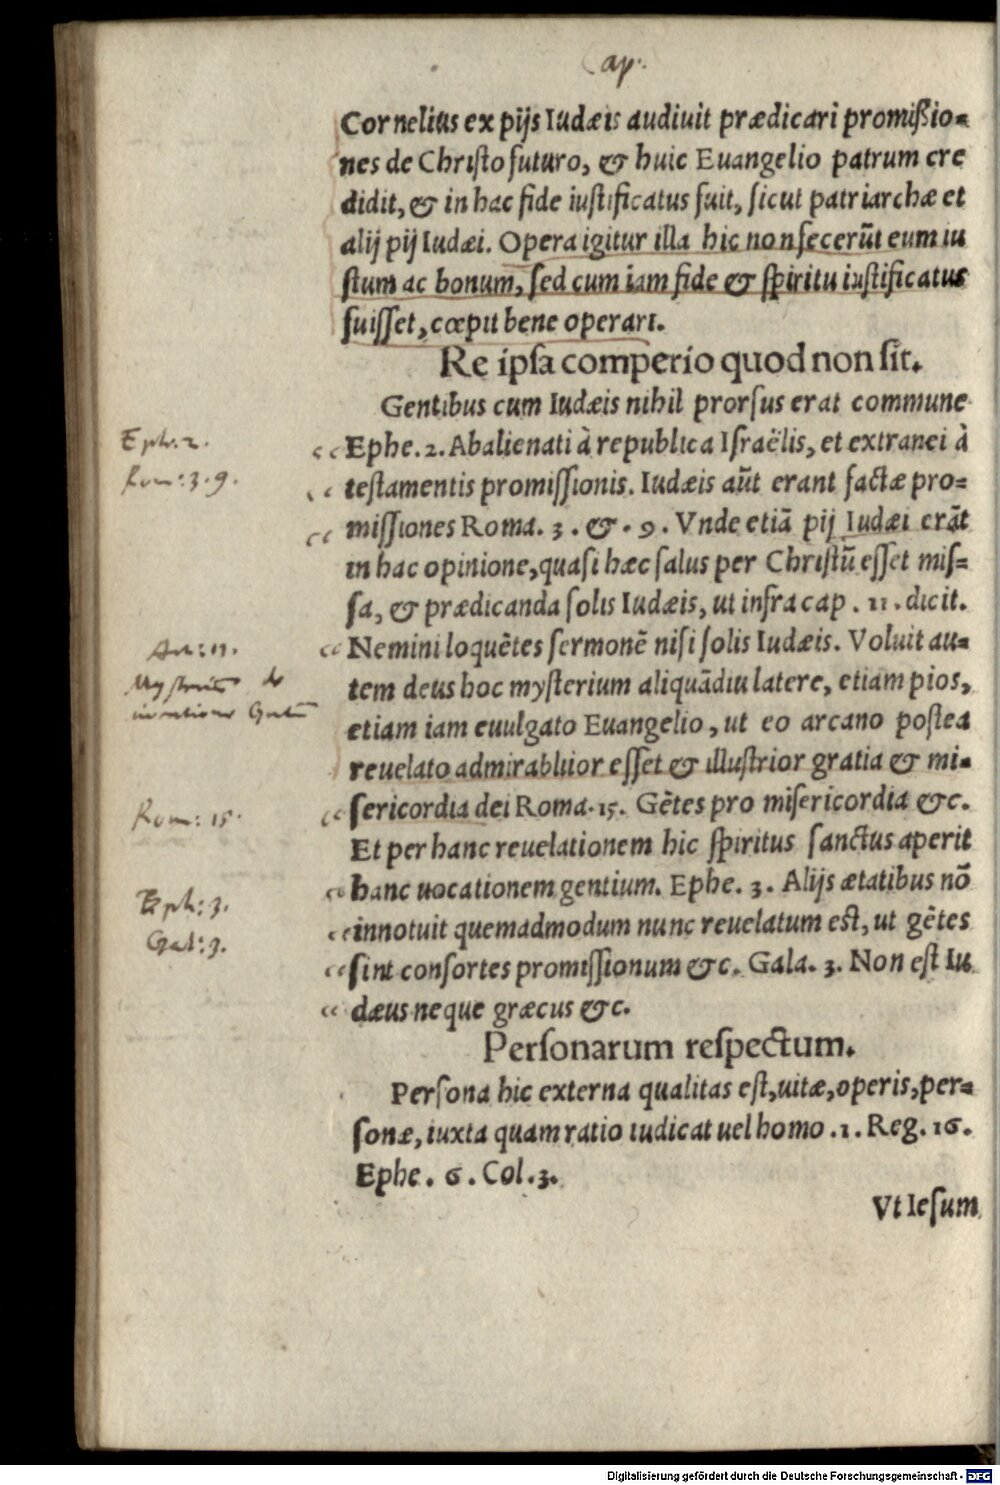 Cap.
Cornelius ex pijs Iudæis audiuit prædicari promißio=
nes de Christo futuro, & huic Euangelio patrum cre
didit, & in hac fide iustificatus fuit, sicut patriarchæ et
alij pij Iudæi. Opera igitur illa hic non fecerūt eum iu
stum ac bonum, sed cum iam fide & spiritu iustificatus
fuisset, cœpit bene operari.
Re ipsa comperio quod non sit.
Gentibus cum Iudæis nihil prorsus erat commune
Eph: 2.
Ephe. 2. Abalienati à republica Israëlis, et extranei à
Rom: 3. 9.
testamentis promissionis. Iudæis aūt erant factæ pro=
missiones Roma. 3. &. 9. Vnde etiā pij Iudæi erāt
in hac opinione, quasi hæc salus per Christū esset mis=
sa, & prædicanda solis Iudæis, ut infra cap. 11. dicit.
Act: 11.
Nemini loquētes sermonē nisi solis Iudæis. Voluit au=
Mysteriū de
tem deus hoc mysterium aliquādiu latere, etiam pios,
etiam iam euulgato Euangelio, ut eo arcano postea
reuelato admirabilior esset & illustrior gratia & mi=
Rom: 15.
sericordia dei Roma. 15. Gētes pro misericordia &c.
Et per hanc reuelationem hic spiritus sanctus aperit
Eph: 3.
hanc uocationem gentium. Ephe. 3. Alijs ætatibus nō
Gal: 3.
innotuit quemadmodum nunc reuelatum est, ut gētes
sint consortes promissionum &c. Gala. 3. Non est Iu
dæus neque græcus &c.
Personarum respectum.
Persona hic externa qualitas est, uitæ, operis, per=
sonæ, iuxta quam ratio iudicat uel homo. 1. Reg. 16.
Ephe. 6. Col. 3.
Vt Iesum
Digitalisierung gefördert durch die Deutsche Forschungsgemeinschaft - DFG